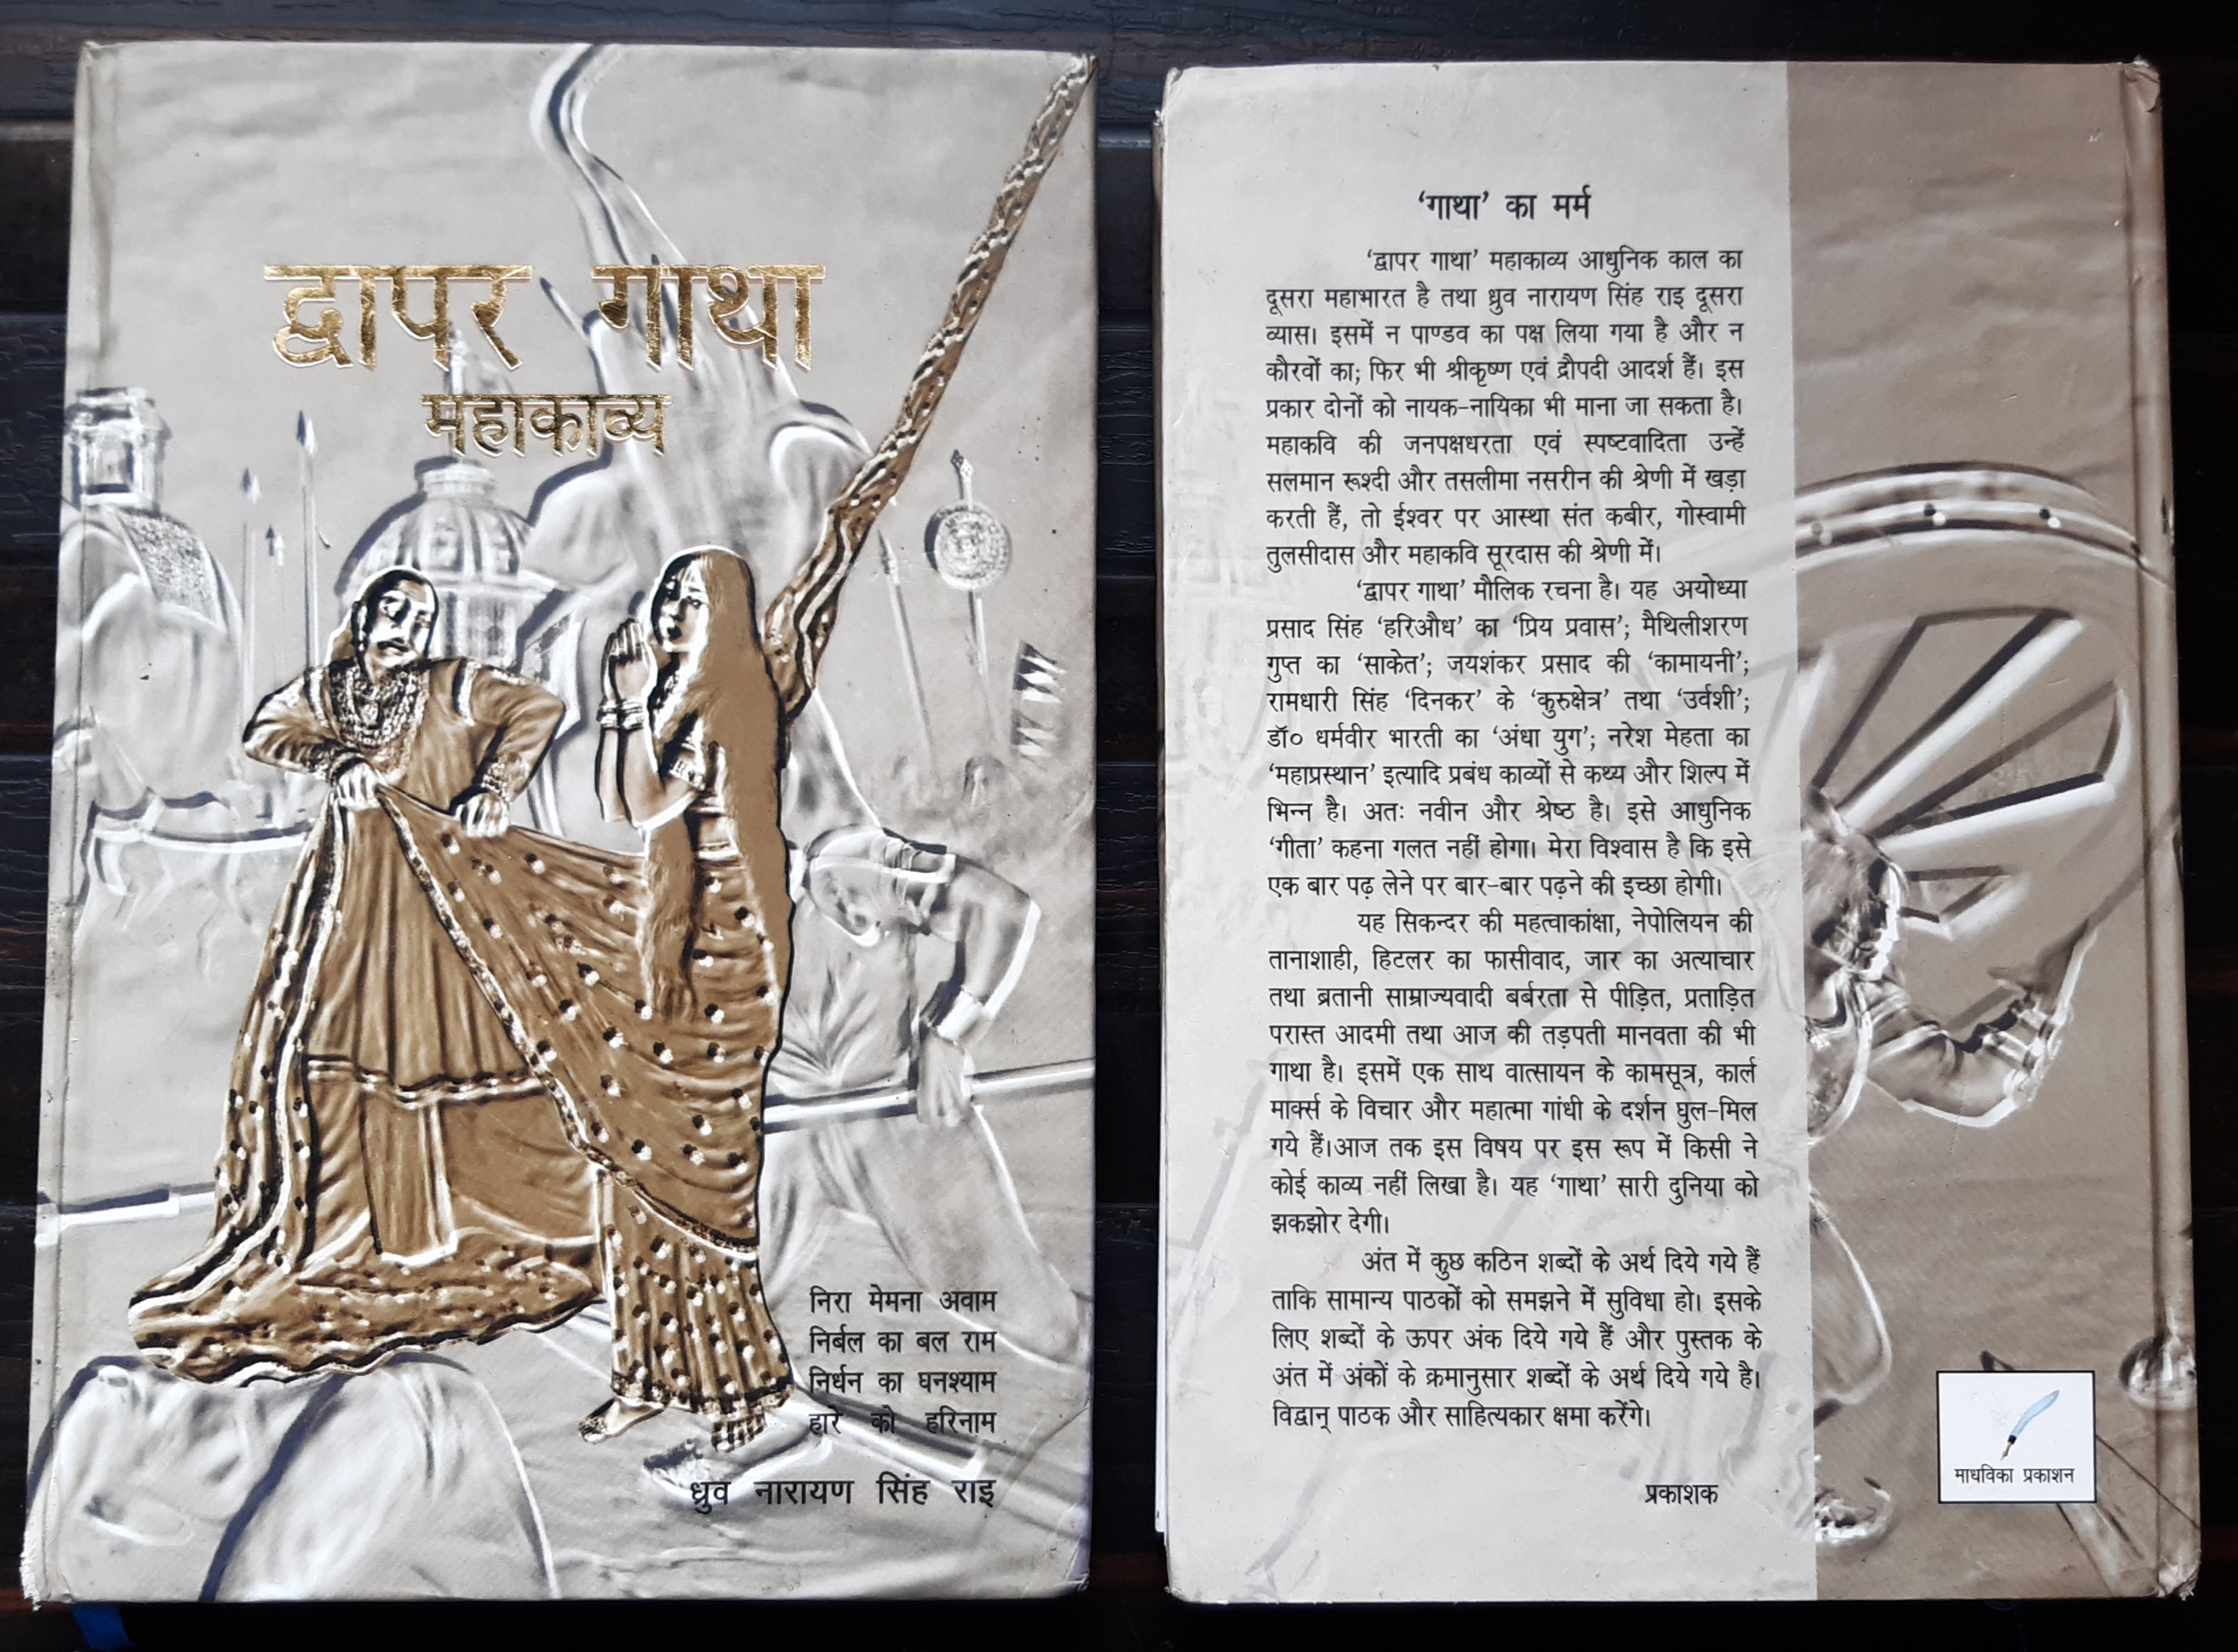 द्वापर गाथा
महाकाव्य
निरा मेमना अवाम
निर्बल का बल राम
निर्धन का घनश्याम
हारे को हरिनाम
ध्रुव नारायण सिंह राइ
‘गाथा’ का मर्म
‘द्वापर गाथा’ महाकाव्य आधुनिक काल का
दूसरा महाभारत है तथा ध्रुव नारायण सिंह राइ दूसरा
व्यास। इसमें न पाण्डव का पक्ष लिया गया है और न
कौरवों का; फिर भी श्रीकृष्ण एवं द्रौपदी आदर्श हैं। इस
प्रकार दोनों को नायक-नायिका भी माना जा सकता है।
महाकवि की जनपक्षधरता एवं स्पष्टवादिता उन्हें
सलमान रूश्दी और तसलीमा नसरीन की श्रेणी में खड़ा
करती हैं, तो ईश्वर पर आस्था संत कबीर, गोस्वामी
तुलसीदास और महाकवि सूरदास की श्रेणी में।
‘द्वापर गाथा’ मौलिक रचना है। यह अयोध्या
प्रसाद सिंह ‘हरिऔध’ का ‘प्रिय प्रवास’; मैथिलीशरण
गुप्त का ‘साकेत’; जयशंकर प्रसाद की ‘कामायनी’;
रामधारी सिंह ‘दिनकर’ के ‘कुरुक्षेत्र’ तथा ‘उर्वशी’;
डॉ० धर्मवीर भारती का ‘अंधा युग’; नरेश मेहता का
‘महाप्रस्थान’ इत्यादि प्रबंध काव्यों से कथ्य और शिल्प में
भिन्न है। अतः नवीन और श्रेष्ठ है। इसे आधुनिक
‘गीता’ कहना गलत नहीं होगा। मेरा विश्वास है कि इसे
एक बार पढ़ लेने पर बार-बार पढ़ने की इच्छा होगी।
यह सिकन्दर की महत्वाकांक्षा, नेपोलियन की
तानाशाही, हिटलर का फासीवाद, जार का अत्याचार
तथा ब्रतानी साम्राज्यवादी बर्बरता से पीड़ित, प्रताड़ित
परास्त आदमी तथा आज की तड़पती मानवता की भी
गाथा है। इसमें एक साथ वात्सायन के कामसूत्र, कार्ल
मार्क्स के विचार और महात्मा गांधी के दर्शन घुल-मिल
गये हैं।आज तक इस विषय पर इस रूप में किसी ने
कोई काव्य नहीं लिखा है। यह ‘गाथा’ सारी दुनिया को
झकझोर देगी।
अंत में कुछ कठिन शब्दों के अर्थ दिये गये हैं
ताकि सामान्य पाठकों को समझने में सुविधा हो। इसके
लिए शब्दों के ऊपर अंक दिये गये हैं और पुस्तक के
अंत में अंकों के क्रमानुसार शब्दों के अर्थ दिये गये है।
विद्वान् पाठक और साहित्यकार क्षमा करेंगे।
प्रकाशक
माधविका प्रकाशन